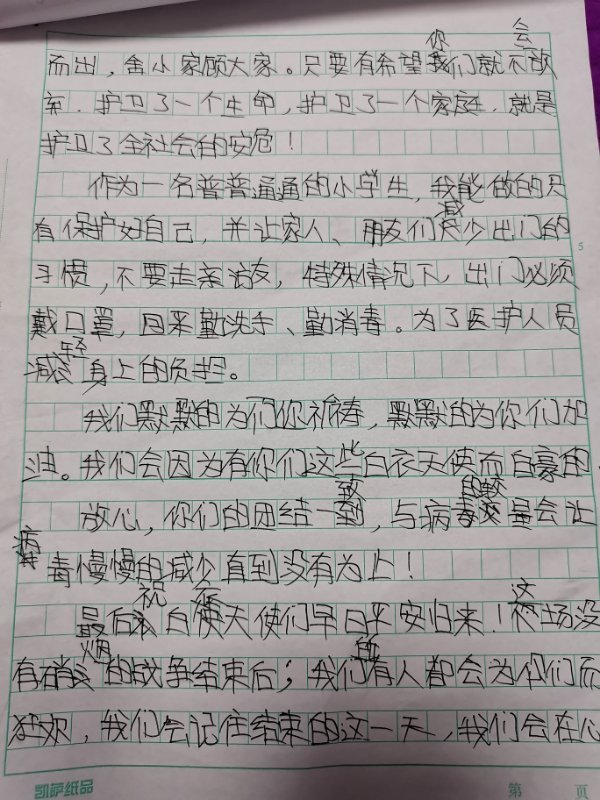 你 会
而出，舍小家顾大家。只要有希望我们就不放
弃．护卫了一个生命，护卫了一个家庭．就是
护卫了全社会的安危！
作为一名普普通通的小学生，我能做的只
有保护好自己，并让家人、朋友们减少出门的
习惯，不要走亲访友，特殊情况下，出门必须
戴口罩，回来勤洗手、勤消毒。为了医护人员
减轻身上的负担。
我们默默的为们你祈祷，默默的为你们加
油。我们会因为有你们这些白衣天使而自豪的．
放心，你们的团结一致，与病毒较量会让
病毒慢慢的减少直到没有为止！
最后祝白衣天使们早日平安归来！这场没
有硝烟的战争结束后；我们所有人都会为你们而
狂欢，我们会记住结束的这一天，我们会在心
凯萨纸品 第 页
5